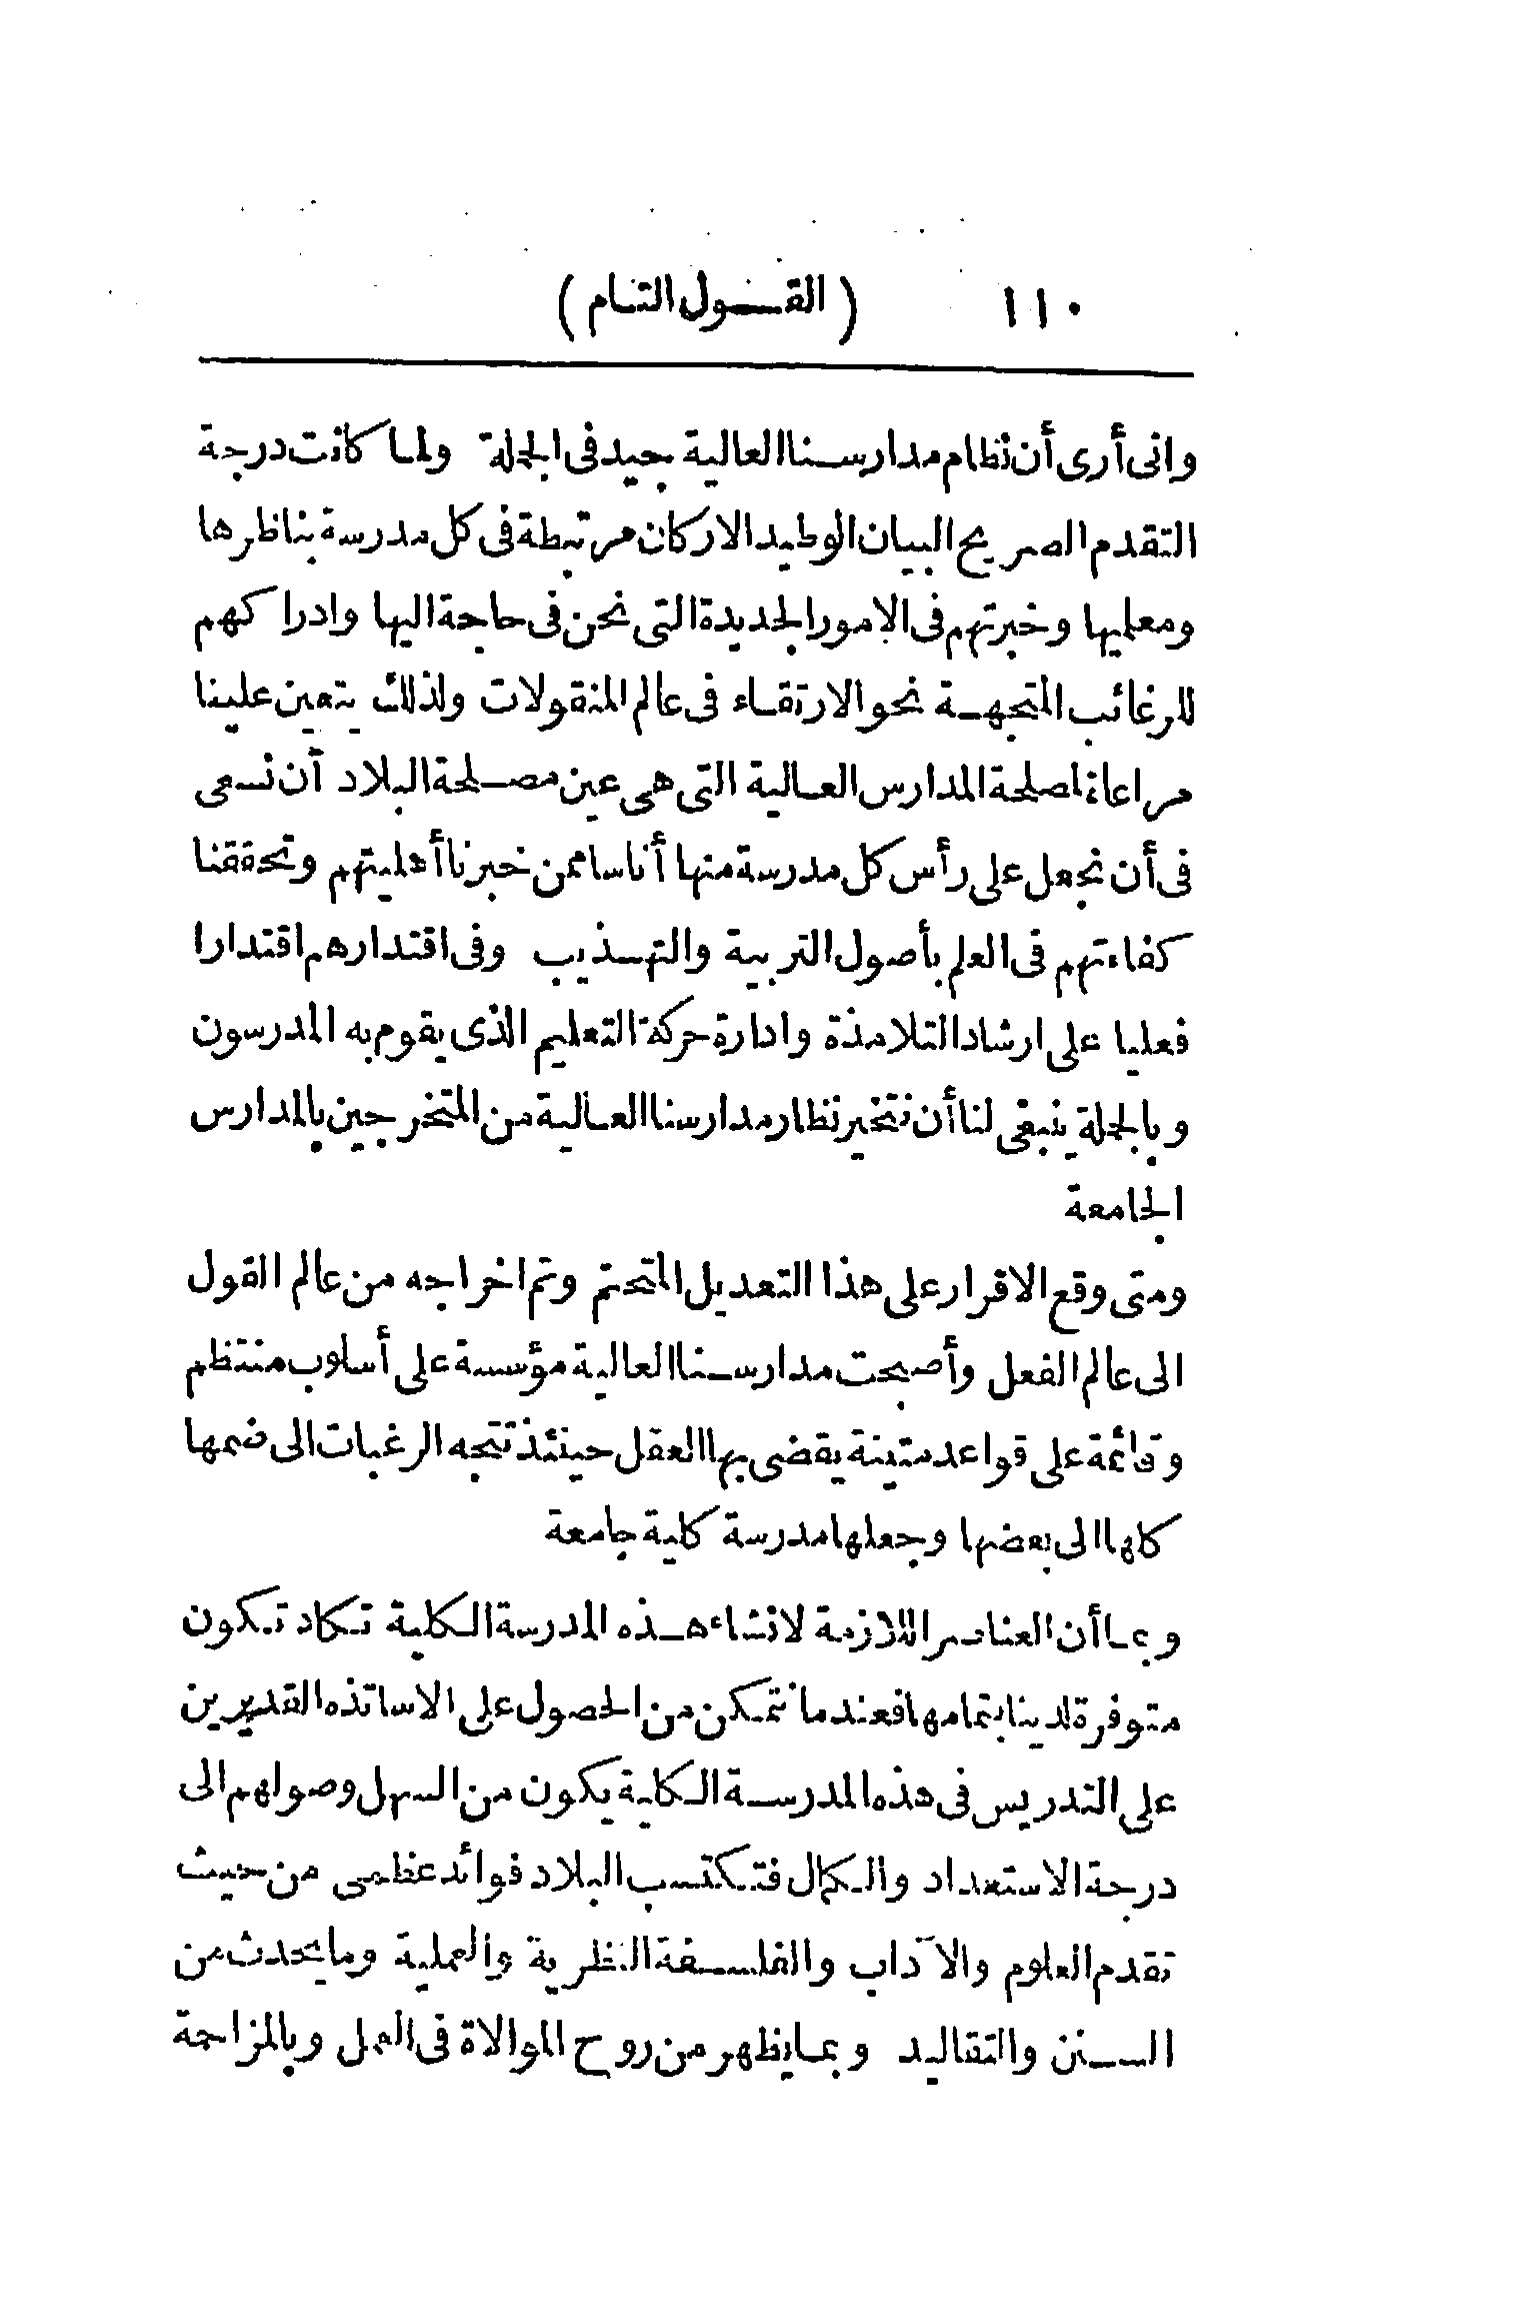 ١١٠ (القول التام)
وانى أرى أن نظام مدارسنا العالية جيد فى الجملة ولما كانت درجة
التقدم الصريح البيان الوطيد الاركان مرتبطة فى كل مدرسة بناظرها
ومعلميها وخبرتهم فى الامور الجديدة التى نحن فى حاجة اليها وادراكهم
للرغائب المتجهة نحو الارتقاء فى عالم المنقولات ولذلك يتعين علينا
مراعاة لصلحة المدارس العالية التى هى عين مصلحة البلاد أن نسعى
فى أن نجعل على رأس كل مدرسة منها أناسا ممن خبرنا أهليتهم وتحققنا
كفاءتهم فى العلم بأصول التربية والتهذيب وفى اقتدارهم اقتدارا
فعليا على ارشاد التلامذة وادارة حركة التعليم الذى يقوم به المدرسون
وبالجملة ينبغى لنا أن نتخير نظار مدارسنا العالية من المتخرجين بالمدارس
الجامعة
ومتى وقع الاقرار على هذا التعديل المتحتم وتم اخراجه من عالم القول
الى عالم الفعل وأصبحت مدارسنا العالية مؤسسة على أسلوب منتظم
وقائمة على قواعد متينة يقضى بها العقل حينئذ تتجه الرغبات الى ضمها
كلها الى بعضها وجعلها مدرسة كلية جامعة
وبما أن العناصر اللازمة لانشاء هذه المدرسة الكلية تكاد تكون
متوفرة لدينا بتمامها فعندما نتمكن من الحصول على الاساتذه القديرين
على التدريس فى هذه المدرسة الكلية يكون من السهل وصولهم الى
درجة الاستعداد والكمال فتكتسب البلاد فوائد عظمى من حيث
تقدم العلوم والآداب والفلسفة النظرية والعملية وما يحدث من
السنن والتقاليد وبما يظهر من روح الموالاة فى العمل وبالمزاحمة